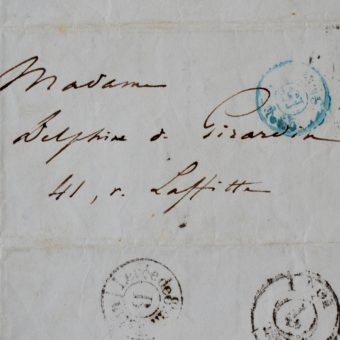 Madame
Delphine de Girardin
41, r. Laffitte